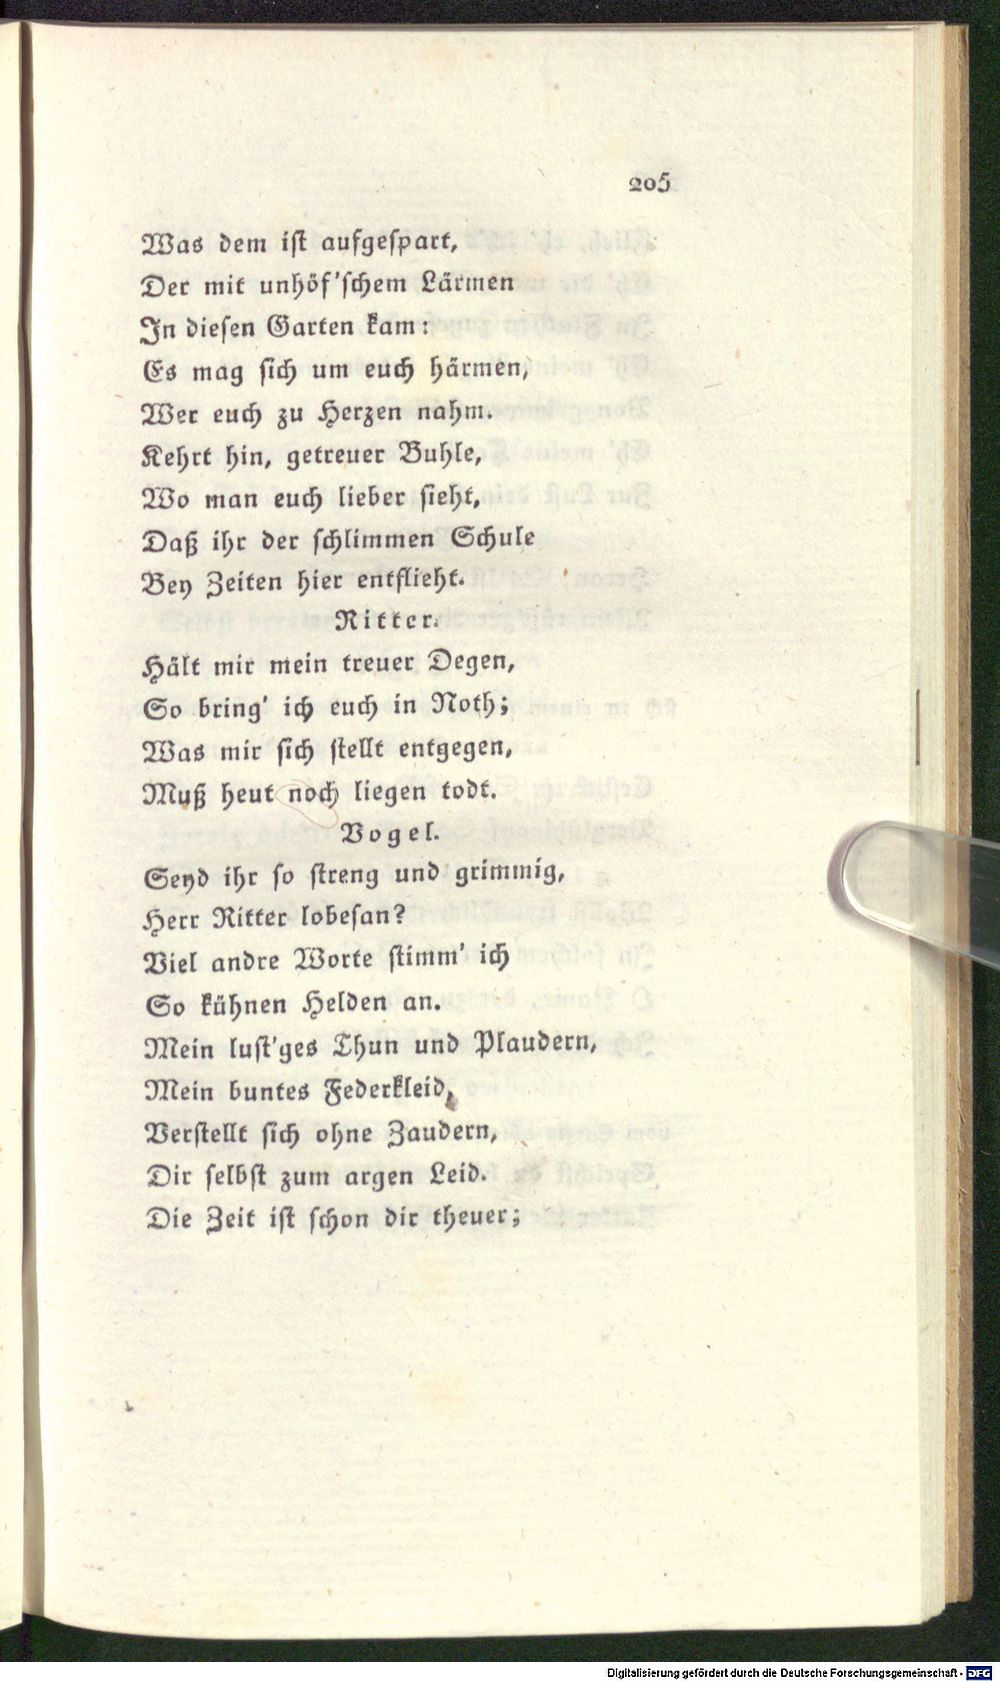 205
Was dem ist aufgespart,
Der mit unhöf'schem Lärmen
In diesen Garten kam:
Es mag sich um euch härmen,
Wer euch zu Herzen nahm.
Kehrt hin, getreuer Buhle,
Wo man euch lieber sieht,
Daß ihr der schlimmen Schule
Bey Zeiten hier entflieht.
Ritter.
Hält mir mein treuer Degen,
So bring' ich euch in Noth;
Was mir sich stellt entgegen,
Muß heut noch liegen todt.
Vogel.
Seyd ihr so streng und grimmig,
Herr Ritter lobesan?
Viel andre Worte stimm' ich
So kühnen Helden an.
Mein lust'ges Thun und Plaudern,
Mein buntes Federkleid,
Verstellt sich ohne Zaudern,
Dir selbst zum argen Leid.
Die Zeit ist schon dir theuer;
Digitalisierung gefördert durch die Deutsche Forschungsgemeinschaft - DFG